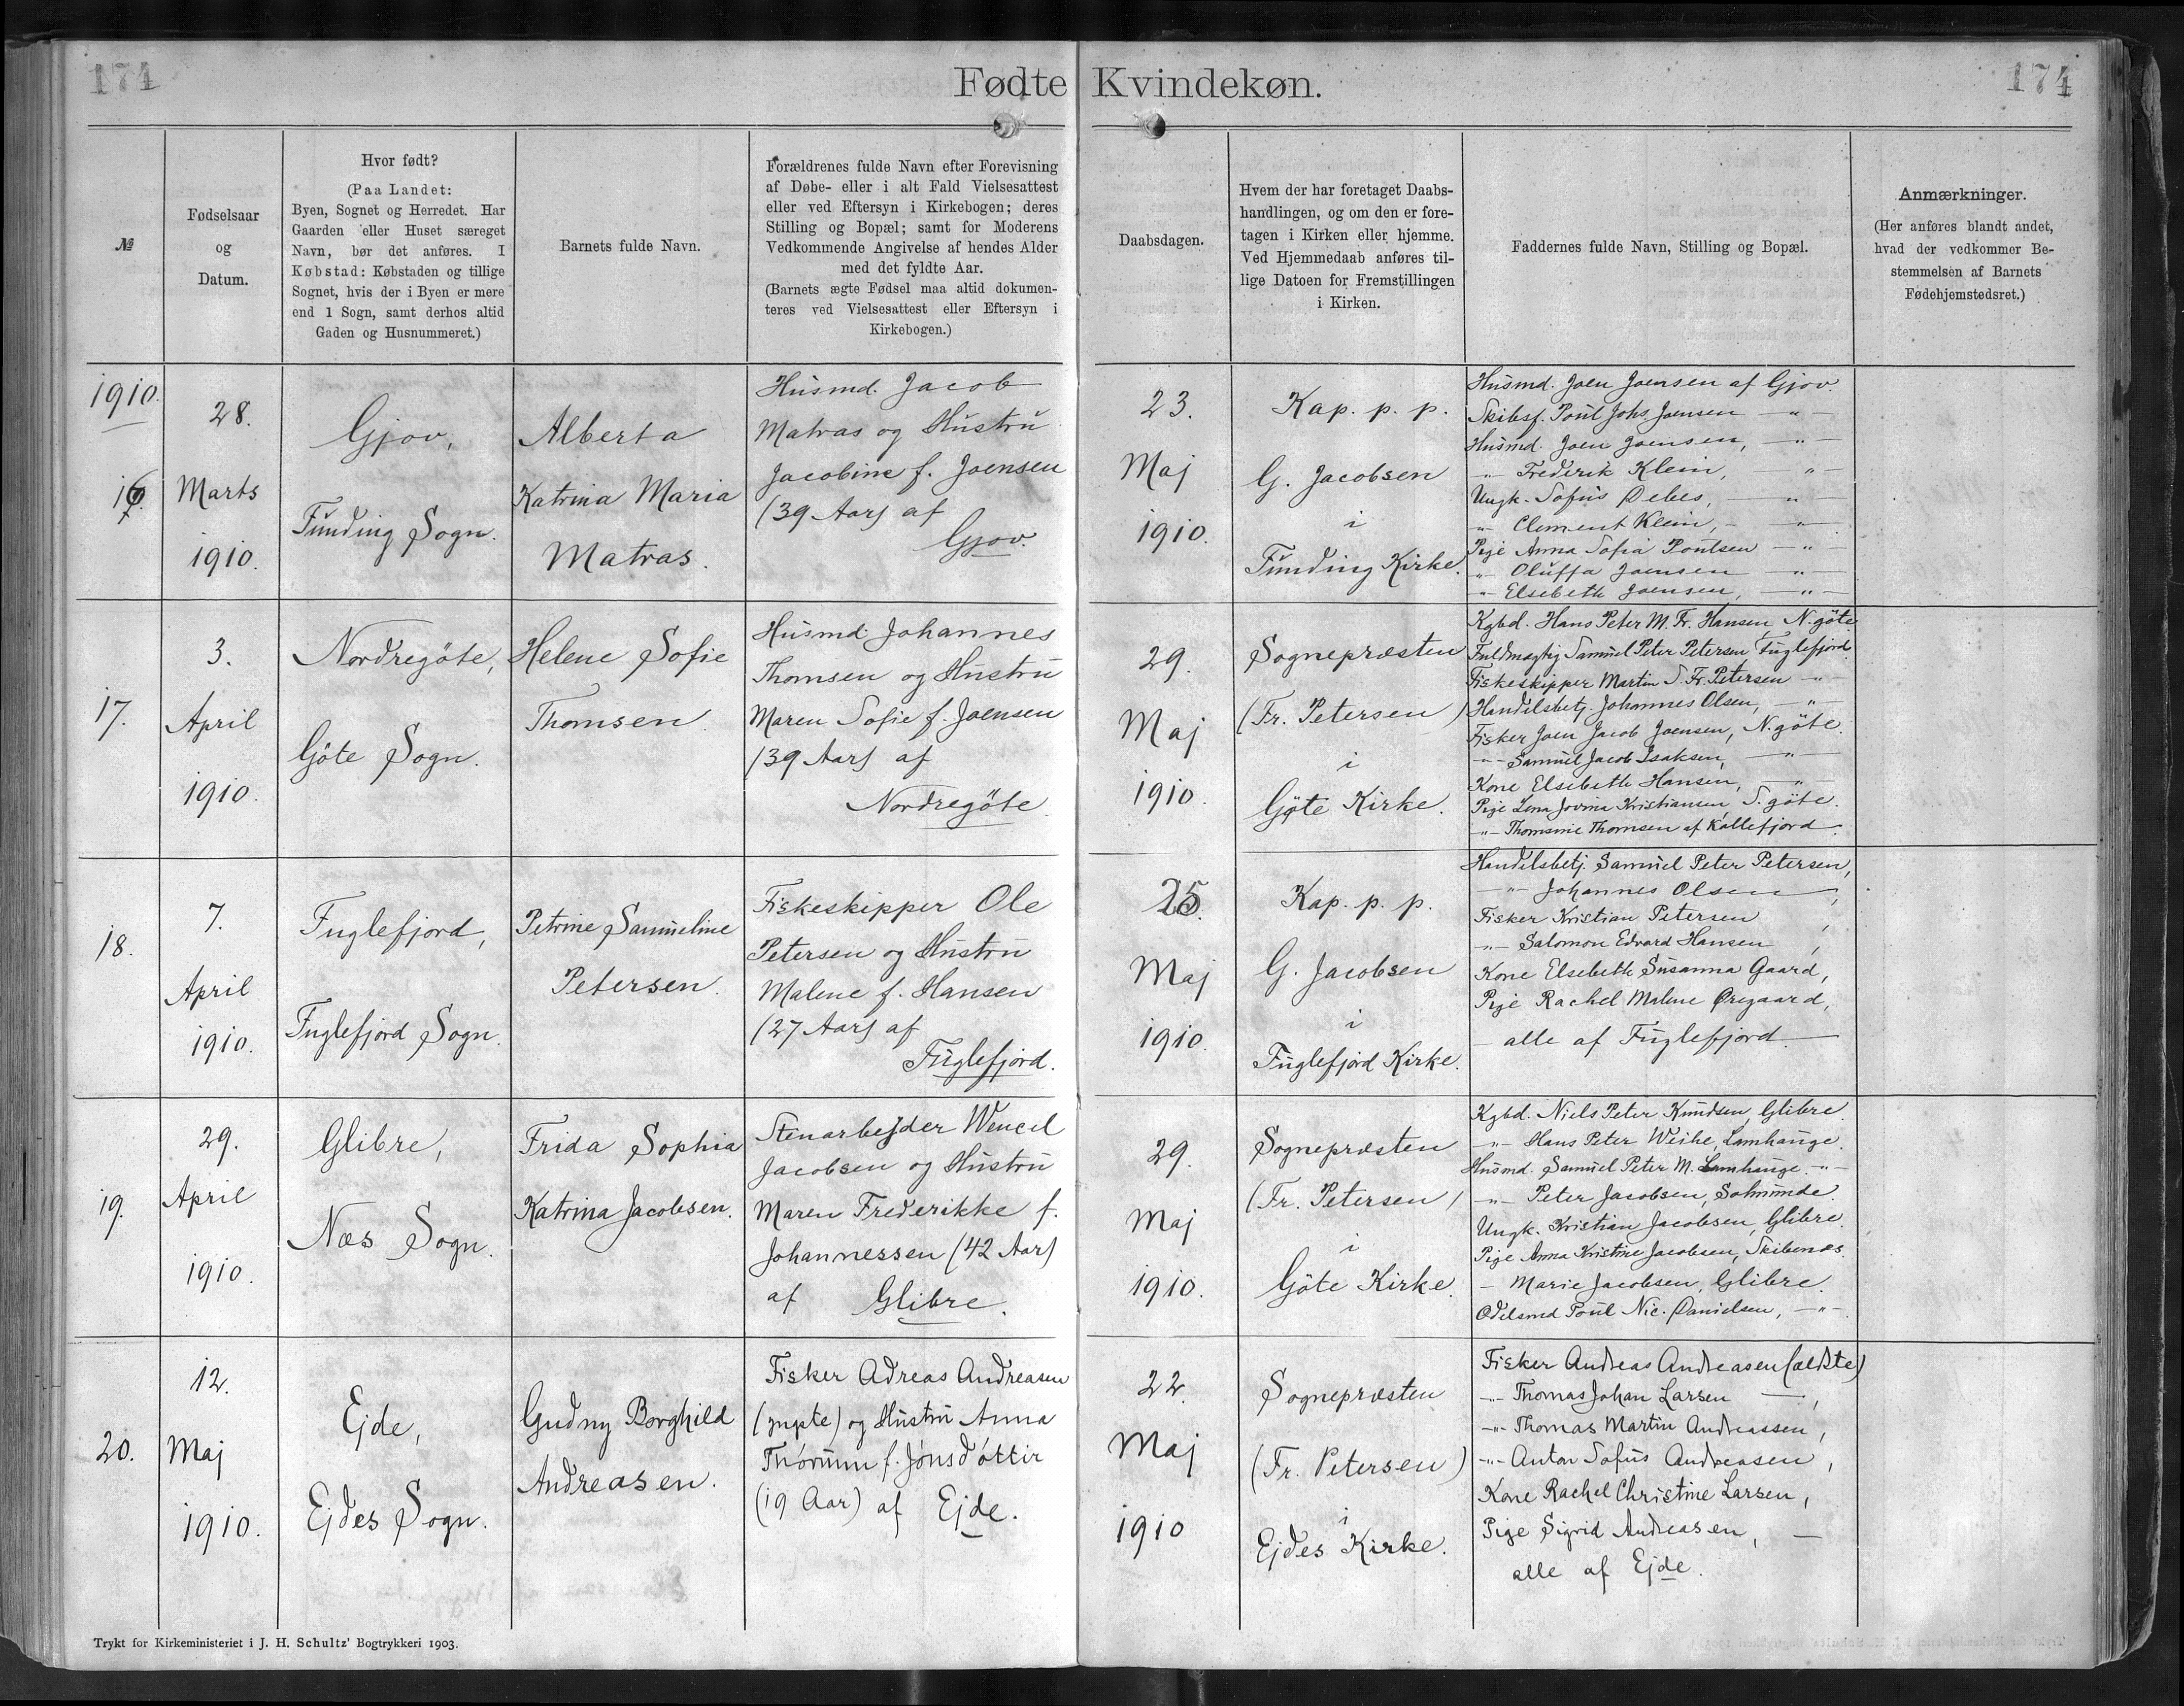 174
Fødte Kvindekøn.
174
№
Fødselsaar
og
Datum.
Hvor født?
(Paa Landet:
Byen, Sognet og Herredet. Har
Gaarden eller Huset særeget
Navn, bør det anføres. I
Købstad: Købstaden og tillige
Sognet, hvis der i Byen er mere
end 1 Sogn, samt derhos altid
Gaden og Husnummeret.)
Barnets fulde Navn.
Forældrenes fulde Navn efter Forevisning
af Døbe- eller i alt Fald Vielsesattest
eller ved Eftersyn i Kirkebogen; deres
Stilling og Bopæl; samt for Moderens
Vedkommende Angivelse af hendes Alder
med det fyldte Aar.
(Barnets ægte Fødsel maa altid dokumen-
teres ved Vielsesattest eller Eftersyn i
Kirkebogen.)
Daabsdagen.
Hvem der har foretaget Daabs-
handlingen, og om den er fore-
tagen i Kirken eller hjemme.
Ved Hjemmedaab anføres til-
lige Datoen for Fremstillingen
i Kirken.
Faddernes fulde Navn, Stilling og Bopæl.
Anmærkninger.
(Her anføres blandt andet,
hvad der vedkommer Be-
stemmelsen af Barnets
Fødehjemstedsret.)
1910.
16.
28.
Marts
1910.
Gjov,
Funding Sogn.
Alberta
Katrina Maria
Matras.
Husmd. Jacob
Matras og Hustru
Jacobine f. Joensen
(39 Aar) af
Gjov.
23.
Maj
1910.
Kap. p. p.
G. Jacobsen
i
Funding Kirke.
Husmd. Joen Joensen af Gjov.
Skibsf. Poul Johs. Joensen — " —
Husmd. Joen Joensen, — " —
" Frederik Klein, — " —
Ungk. Sofus Debes, — " —
" Clement Klein, — " —
Pige Anna Sofia Poulsen — " —
" Oluffa Joensen — " —
" Elsebeth Joensen, — " —
17.
3.
April
1910.
Nordregöte,
Göte Sogn.
Helene Sofie
Thomsen.
Husmd. Johannes
Thomsen og Hustru
Maren Sofie f. Joensen
(39 Aar) af
Nordregöte.
29.
Maj
1910.
Sognepræsten
(Fr. Petersen)
i
Göte Kirke.
Kgbd. Hans Peter M. Fr. Hansen N.göte
Fuldmægtig Samuel Peter Petersen Fuglefjord
Fiskeskipper Martin S. Fr. Petersen — " —
Handelsbetj. Johannes Olsen, — " —
Fisker Joen Jacob Joensen, N.göte.
— " — Samuel Jacob Isaksen, — " —
Kone Elsebeth Hansen, — " —
Pige Lena Jovina Kristiansen, S. göte.
— " — Thomsine Thomsen af Kollefjord.
18.
7.
April
1910.
Fuglefjord,
Fuglefjord Sogn.
Petrine Samueline
Petersen.
Fiskeskipper Ole
Petersen og Hustru
Malene f. Hansen
(27 Aar) af
Fuglefjord.
25.
Maj
1910.
Kap. p. p.
G. Jacobsen
i
Fuglefjord Kirke.
Handelsbetj. Samuel Peter Petersen,
— " — Johannes Olsen,
Fisker Kristian Petersen,
— " — Salomon Edvard Hansen,
Kone Elsebeth Susanna Gaard,
Pige Rachel Malene Øregaard,
— alle af Fuglefjord. —
19.
29.
April
1910.
Glibre,
Næs Sogn.
Frida Sophia
Katrina Jacobsen.
Stenarbejder Wencel
Jacobsen og Hustru
Maren Frederikke f.
Johannessen (42 Aar)
af Glibre.
29.
Maj
1910.
Sognepræsten
(Fr. Petersen)
i
Göte Kirke.
Kgbd. Niels Peter Knudsen, Glibre.
— " — Hans Peter Weihe, Lamhauge.
Husmd. Samuel Peter M. Lamhauge. — " —
— " — Peter Jacobsen, Solmunde.
Ungk. Kristian Jacobsen, Glibre.
Pige Anna Kristine Jacobsen, Skibenæs.
— Marie Jacobsen, Glibre.
Odelsmd Poul Nic. Danielsen, — " —
20.
12.
Maj
1910.
Ejde,
Ejdes Sogn.
Gudny Borghild
Andreasen.
Fisker Adreas Andreasen
(yngste) og Hustru Anna
Thórunn f. Jónsdóttir
(19 Aar) af Ejde.
22.
Maj
1910
Sognepræsten
(Fr. Petersen)
i
Ejdes Kirke.
Fisker Andreas Andreasen (ældste)
— " — Thomas Johan Larsen —,
— " — Thomas Martin Andreassen,
— " — Anton Sofus Andreasen,
Kone Rachel Christine Larsen,
Pige Sigrid Andreasen, —
alle af Ejde.
Trykt for Kirkeministeriet i J. H. Schultz' Bogtrykkeri 1903.